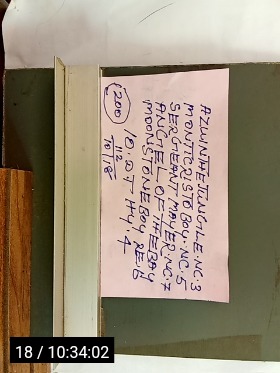 AZUNTHEJUNGLE.NC.3
MONTICRISTO BOY.NC.5
SERGEANT MAYER.NC.7
ANGEL OF THEBAY
MOONSTONEBOY RE.6
10.D.T HY.4
112
200
18 / 10:34:02